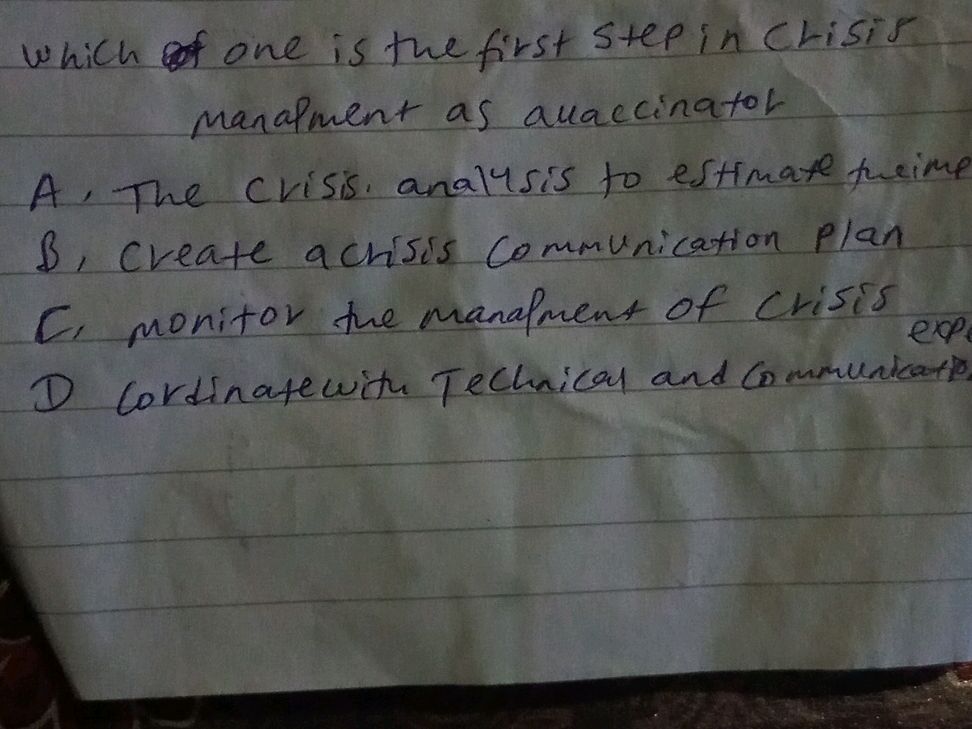 which of one is the first step in crisis
manapment as auaccinator
A, The crisis. analysis to estimate
B, create a crisis communication plan
C, monitor the manapment of crisis
exp
D cordinate with Technical and communicatio